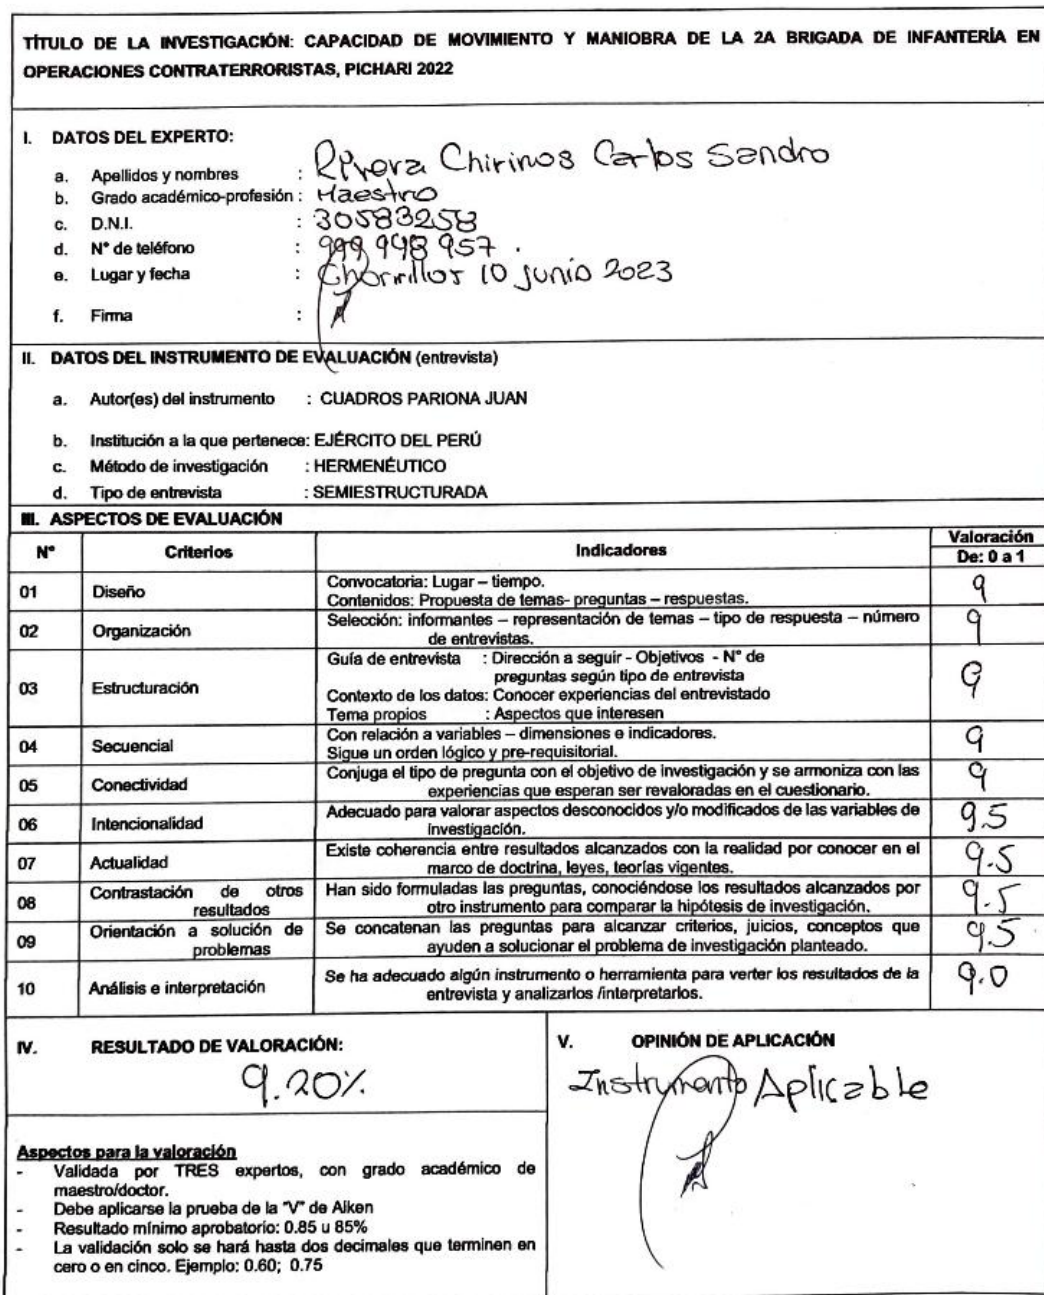 TÍTULO DE LA INVESTIGACIÓN: CAPACIDAD DE MOVIMIENTO Y MANIOBRA DE LA 2A BRIGADA DE INFANTERÍA EN
OPERACIONES CONTRATERRORISTAS, PICHARI 2022
I. DATOS DEL EXPERTO:
a. Apellidos y nombres : Rivera Chirinos Carlos Sandro
b. Grado académico-profesión : Maestro
c. D.N.I. : 30583258
d. N° de teléfono : 999 998 957.
e. Lugar y fecha : Chorrillos 10 junio 2023
f. Firma :
II. DATOS DEL INSTRUMENTO DE EVALUACIÓN (entrevista)
a. Autor(es) del instrumento : CUADROS PARIONA JUAN
b. Institución a la que pertenece: EJÉRCITO DEL PERÚ
c. Método de investigación : HERMENÉUTICO
d. Tipo de entrevista : SEMIESTRUCTURADA
III. ASPECTOS DE EVALUACIÓN
N° Criterios Indicadores Valoración
De: 0 a 1
01 Diseño Convocatoria: Lugar – tiempo.
Contenidos: Propuesta de temas- preguntas – respuestas. 9
02 Organización Selección: informantes – representación de temas – tipo de respuesta – número
de entrevistas. 9
03 Estructuración Guía de entrevista : Dirección a seguir - Objetivos - N° de
preguntas según tipo de entrevista
Contexto de los datos: Conocer experiencias del entrevistado
Tema propios : Aspectos que interesen 9
04 Secuencial Con relación a variables – dimensiones e indicadores.
Sigue un orden lógico y pre-requisitorial. 9
05 Conectividad Conjuga el tipo de pregunta con el objetivo de investigación y se armoniza con las
experiencias que esperan ser revaloradas en el cuestionario. 9
06 Intencionalidad Adecuado para valorar aspectos desconocidos y/o modificados de las variables de
investigación. 9.5
07 Actualidad Existe coherencia entre resultados alcanzados con la realidad por conocer en el
marco de doctrina, leyes, teorías vigentes. 9.5
08 Contrastación de otros
resultados Han sido formuladas las preguntas, conociéndose los resultados alcanzados por
otro instrumento para comparar la hipótesis de investigación. 9.5
09 Orientación a solución de
problemas Se concatenan las preguntas para alcanzar criterios, juicios, conceptos que
ayuden a solucionar el problema de investigación planteado. 9.5
10 Análisis e interpretación Se ha adecuado algún instrumento o herramienta para verter los resultados de la
entrevista y analizarlos /interpretarlos. 9.0
IV. RESULTADO DE VALORACIÓN:
9.20%
Aspectos para la valoración
- Validada por TRES expertos, con grado académico de
maestro/doctor.
- Debe aplicarse la prueba de la "V" de Aiken
- Resultado mínimo aprobatorio: 0.85 u 85%
- La validación solo se hará hasta dos decimales que terminen en
cero o en cinco. Ejemplo: 0.60; 0.75
V. OPINIÓN DE APLICACIÓN
Instrumento Aplicable